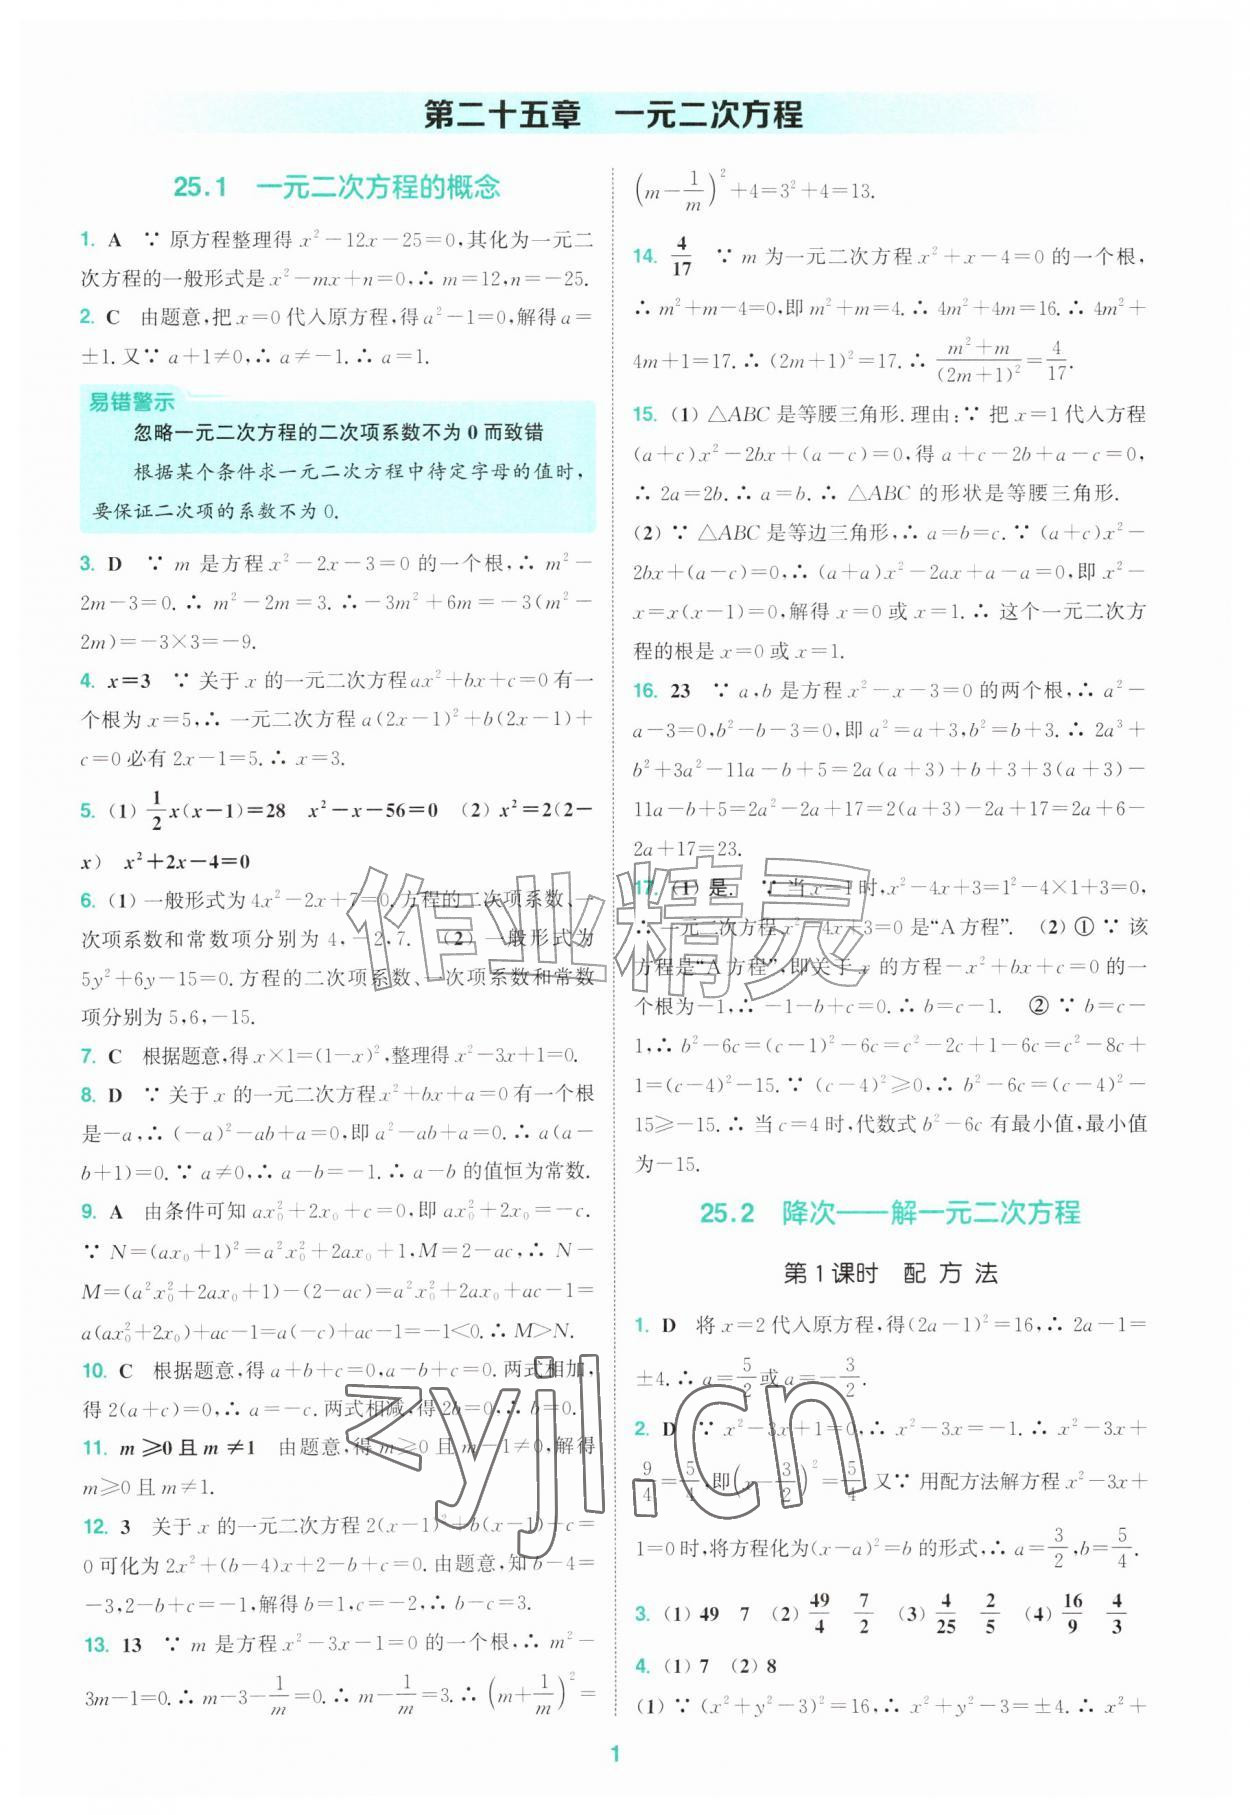 第二十五章 一元二次方程
25.1 一元二次方程的概念
1. A ∵ 原方程整理得 x²-12x-25=0,其化为一元二
次方程的一般形式是 x²-mx+n=0,∴ m=12,n=-25.
2. C 由题意,把 x=0 代入原方程,得 a²-1=0,解得 a=
±1. 又∵ a+1≠0,∴ a≠-1. ∴ a=1.
易错警示
忽略一元二次方程的二次项系数不为 0 而致错
根据某个条件求一元二次方程中待定字母的值时,
要保证二次项的系数不为 0.
3. D ∵ m 是方程 x²-2x-3=0 的一个根,∴ m²-
2m-3=0. ∴ m²-2m=3. ∴ -3m²+6m=-3(m²-
2m)=-3×3=-9.
4. x=3 ∵ 关于 x 的一元二次方程 ax²+bx+c=0 有一
个根为 x=5,∴ 一元二次方程 a(2x-1)²+b(2x-1)+
c=0 必有 2x-1=5. ∴ x=3.
5. (1) 1/2 x(x-1)=28 x²-x-56=0 (2) x²=2(2-
x) x²+2x-4=0
6. (1) 一般形式为 4x²-2x+7=0. 方程的二次项系数、一
次项系数和常数项分别为 4,-2,7. (2) 一般形式为
5y²+6y-15=0. 方程的二次项系数、一次项系数和常数
项分别为 5,6,-15.
7. C 根据题意,得 x×1=(1-x)²,整理得 x²-3x+1=0.
8. D ∵ 关于 x 的一元二次方程 x²+bx+a=0 有一个根
是-a,∴ (-a)²-ab+a=0,即 a²-ab+a=0. ∴ a(a-
b+1)=0. ∵ a≠0,∴ a-b=-1. ∴ a-b 的值恒为常数.
9. A 由条件可知 ax₀²+2x₀+c=0,即 ax₀²+2x₀=-c.
∵ N=(ax₀+1)²=a²x₀²+2ax₀+1,M=2-ac,∴ N-
M=(a²x₀²+2ax₀+1)-(2-ac)=a²x₀²+2ax₀+ac-1=
a(ax₀²+2x₀)+ac-1=a(-c)+ac-1=-1<0. ∴ M>N.
10. C 根据题意,得 a+b+c=0,a-b+c=0. 两式相加,
得 2(a+c)=0,∴ a=-c. 两式相减,得 2b=0,∴ b=0.
11. m≥0 且 m≠1 由题意,得 m≥0 且 m-1≠0,解得
m≥0 且 m≠1.
12. 3 关于 x 的一元二次方程 2(x-1)²+b(x-1)+c=
0 可化为 2x²+(b-4)x+2-b+c=0. 由题意,知 b-4=
-3,2-b+c=-1,解得 b=1,c=-2,∴ b-c=3.
13. 13 ∵ m 是方程 x²-3x-1=0 的一个根,∴ m²-
3m-1=0. ∴ m-3-1/m=0. ∴ m-1/m=3. ∴ (m+1/m)²=
(m-1/m)²+4=3²+4=13.
14. 4/17 ∵ m 为一元二次方程 x²+x-4=0 的一个根,
∴ m²+m-4=0,即 m²+m=4. ∴ 4m²+4m=16. ∴ 4m²+
4m+1=17. ∴ (2m+1)²=17. ∴ (m²+m)/(2m+1)²=4/17.
15. (1) △ABC 是等腰三角形. 理由:∵ 把 x=1 代入方程
(a+c)x²-2bx+(a-c)=0,得 a+c-2b+a-c=0,
∴ 2a=2b. ∴ a=b. ∴ △ABC 的形状是等腰三角形.
(2) ∵ △ABC 是等边三角形,∴ a=b=c. ∵ (a+c)x²-
2bx+(a-c)=0,∴ (a+a)x²-2ax+a-a=0,即 x²-
x=x(x-1)=0,解得 x=0 或 x=1. ∴ 这个一元二次方
程的根是 x=0 或 x=1.
16. 23 ∵ a,b 是方程 x²-x-3=0 的两个根,∴ a²-
a-3=0,b²-b-3=0,即 a²=a+3,b²=b+3. ∴ 2a³+
b²+3a²-11a-b+5=2a(a+3)+b+3+3(a+3)-
11a-b+5=2a²-2a+17=2(a+3)-2a+17=2a+6-
2a+17=23.
17. (1) 是. ∵ 当 x=1 时,x²-4x+3=1²-4×1+3=0,
∴ 一元二次方程 x²-4x+3=0 是“A方程”. (2) ① ∵ 该
方程是“A方程”,即关于 x 的方程-x²+bx+c=0 的一
个根为-1,∴ -1-b+c=0. ∴ b=c-1. ② ∵ b=c-
1,∴ b²-6c=(c-1)²-6c=c²-2c+1-6c=c²-8c+
1=(c-4)²-15. ∵ (c-4)²≥0,∴ b²-6c=(c-4)²-
15≥-15. ∴ 当 c=4 时,代数式 b²-6c 有最小值,最小值
为-15.
25.2 降次——解一元二次方程
第1课时 配方法
1. D 将 x=2 代入原方程,得(2a-1)²=16,∴ 2a-1=
±4. ∴ a=5/2 或 a=-3/2.
2. D ∵ x²-3x+1=0,∴ x²-3x=-1. ∴ x²-3x+
9/4=5/4,即(x-3/2)²=5/4. 又∵ 用配方法解方程 x²-3x+
1=0 时,将方程化为(x-a)²=b 的形式,∴ a=3/2,b=5/4.
3. (1) 49 7 (2) 49/4 7/2 (3) 4/25 2/5 (4) 16/9 4/3
4. (1) 7 (2) 8
(1) ∵ (x²+y²-3)²=16,∴ x²+y²-3=±4. ∴ x²+
1
作业精灵
zyjl.cn